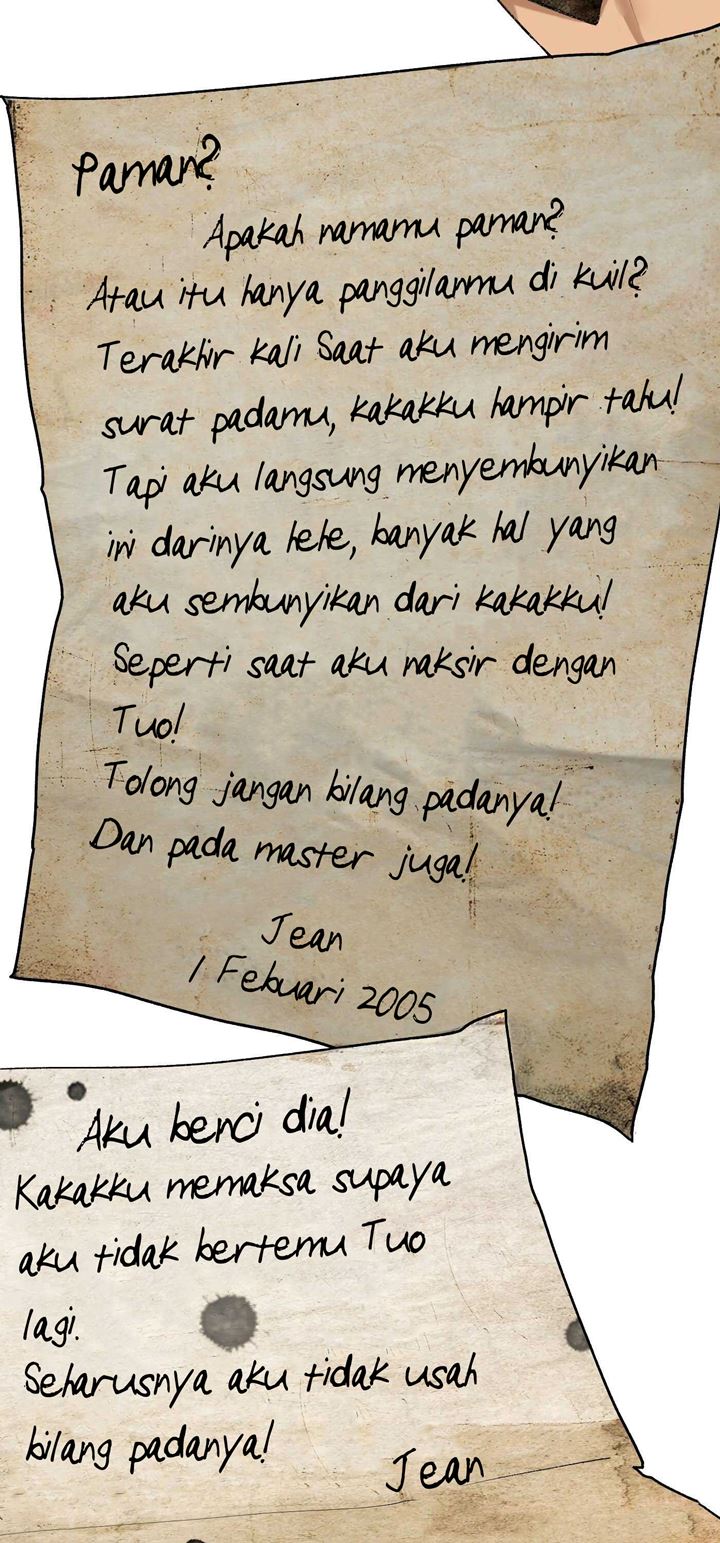 Paman?
Apakah namamu paman?
Atau itu hanya panggilanmu di kuil?
Terakhir kali Saat aku mengirim
surat padamu, kakakku hampir tahu!
Tapi aku langsung menyembunyikan
ini darinya hehe, banyak hal yang
aku sembunyikan dari kakakku!
Seperti saat aku naksir dengan
Tuo!
Tolong jangan bilang padanya!
Dan pada master juga!
Jean
1 Febuari 2005
Aku benci dia!
Kakakku memaksa supaya
aku tidak bertemu Tuo
lagi.
Seharusnya aku tidak usah
bilang padanya!
Jean